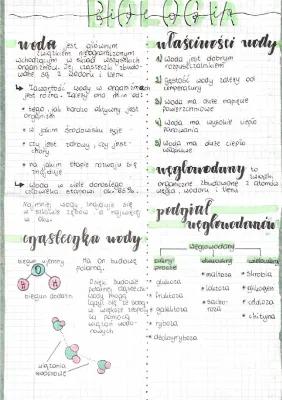 BIOLOGIA
woda jest głównym
związkiem nieorganicznym
wchodzącym w skład wszystkich
organizmów. Jej cząsteczki zbudo-
wane są z wodoru i tlenu
↳ Zawartość wody w organizmach
jest różna. Zależy ona m.in od:
• tego jak bardzo aktywny jest
organizm
• w jakim środowisku żyje
• czy jest zdrowy, czy jest
chory
• na jakim etapie rozwoju się
znajduje
↳ Woda w ciele dorosłego
człowieka stanowi ok. 65%.
Najmniej wody znajduje się
w szkliwie zębów a najwięcej
w oku.
cząsteczka wody
biegun ujemny
O
H H
biegun dodatni
Ma on budowę
polarną.
Dzięki budowie
polarnej cząsteczki
wody mogą
łączyć się ze sobą
w większe zespoły
za pomocą
wiązań wodo-
rowych.
wiązania
wodorowe
właściwości wody
1) Woda jest dobrym
rozpuszczalnikiem
2) Gęstość wody zależy od
temperatury
3) Woda ma duże napięcie
powierzchniowe
4) Woda ma wysokie ciepło
parowania
5) Woda ma duże ciepło
właściwe
węglowodany to związki
organiczne zbudowane z atomów
węgla, wodoru i tlenu
podział
węglowodanów
węglowodany
cukry
proste
dwucukry
wielocukry
• glukoza
• fruktoza
• galaktoza
• ryboza
• deoksyryboza
• maltoza
• laktoza
• sacha-
roza
• skrobia
• glikogen
• celuloza
• chityna